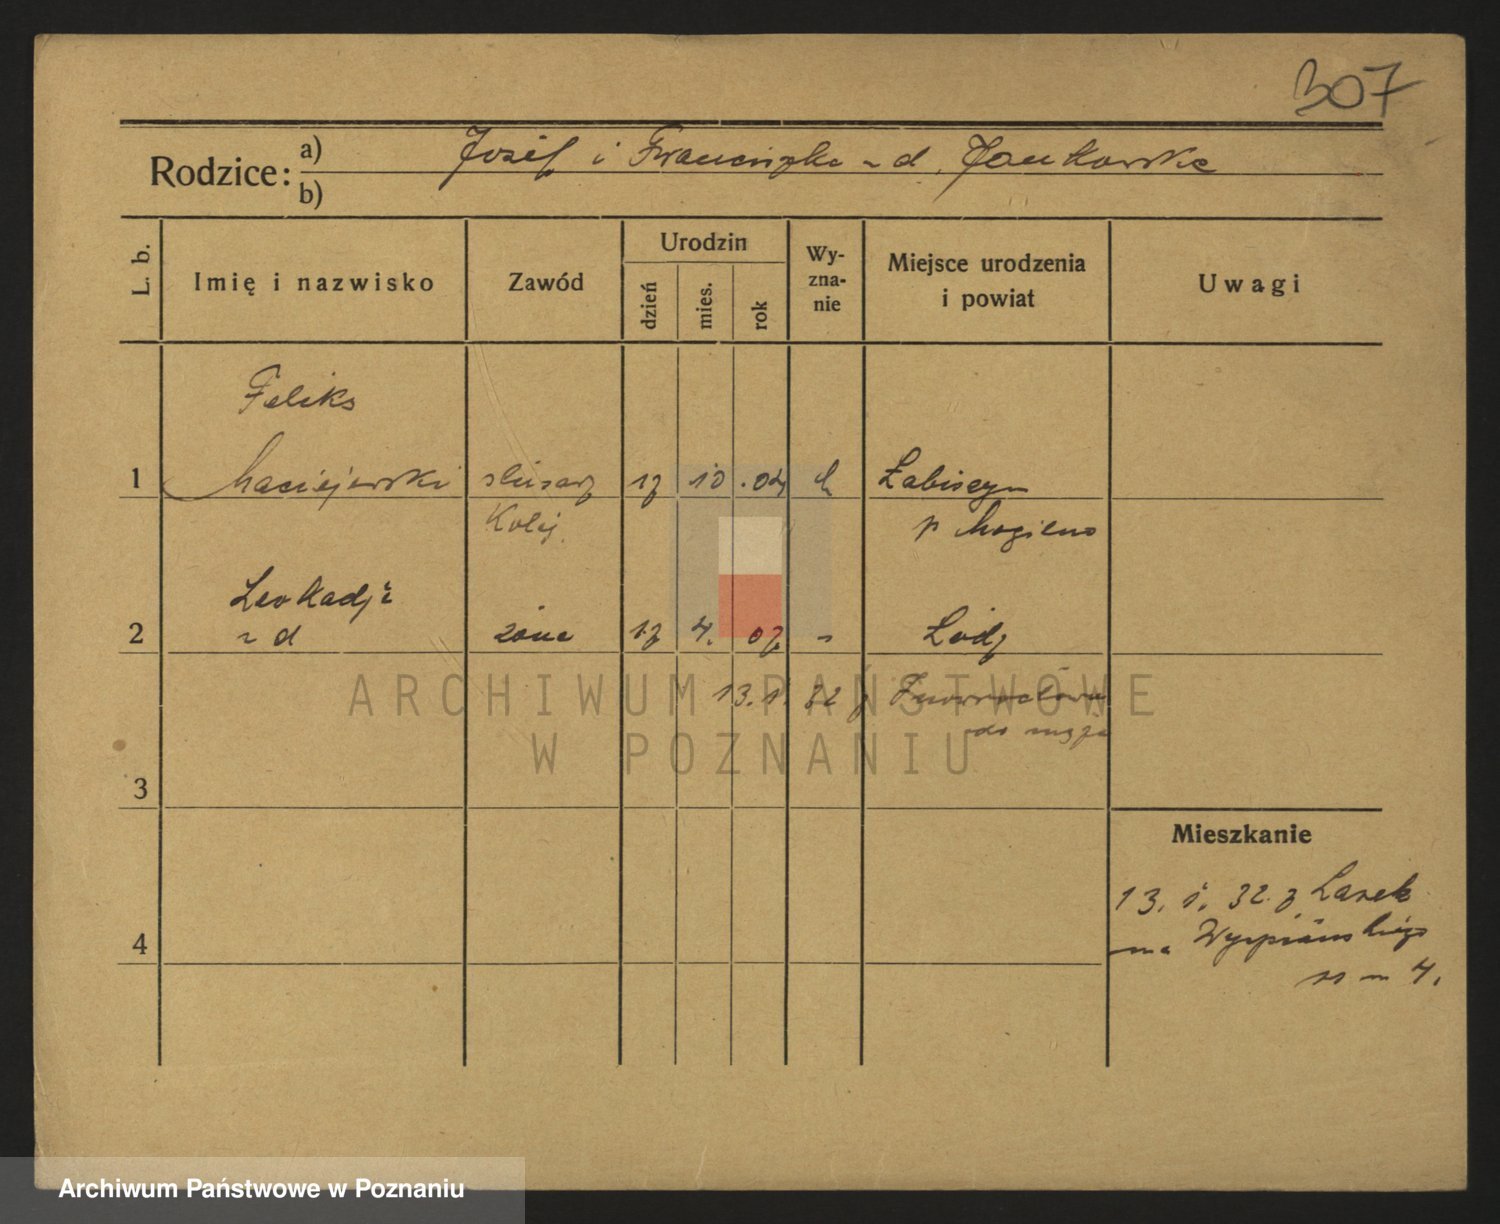 307
Rodzice: a) Józef i Franciszka z d. Jankowska
b)
L. b. Imię i nazwisko Zawód Urodzin dzień mies. rok Wy-zna-nie Miejsce urodzenia i powiat Uwagi
Feliks
1 Maciejewski ślusarz 17 10 .04 k Łabiszyn
Kolej. p Mogilno
Leokadja
2 z d żona 17 4. 07 " Łódź
ARCHIWUM PAŃSTWOWE
13.1.32 z Inowrocławia
do męża
W POZNANIU
3
Mieszkanie
13. 1. 32. z Lasek
na Wyspiańskiego
4
m 4.
Archiwum Państwowe w Poznaniu